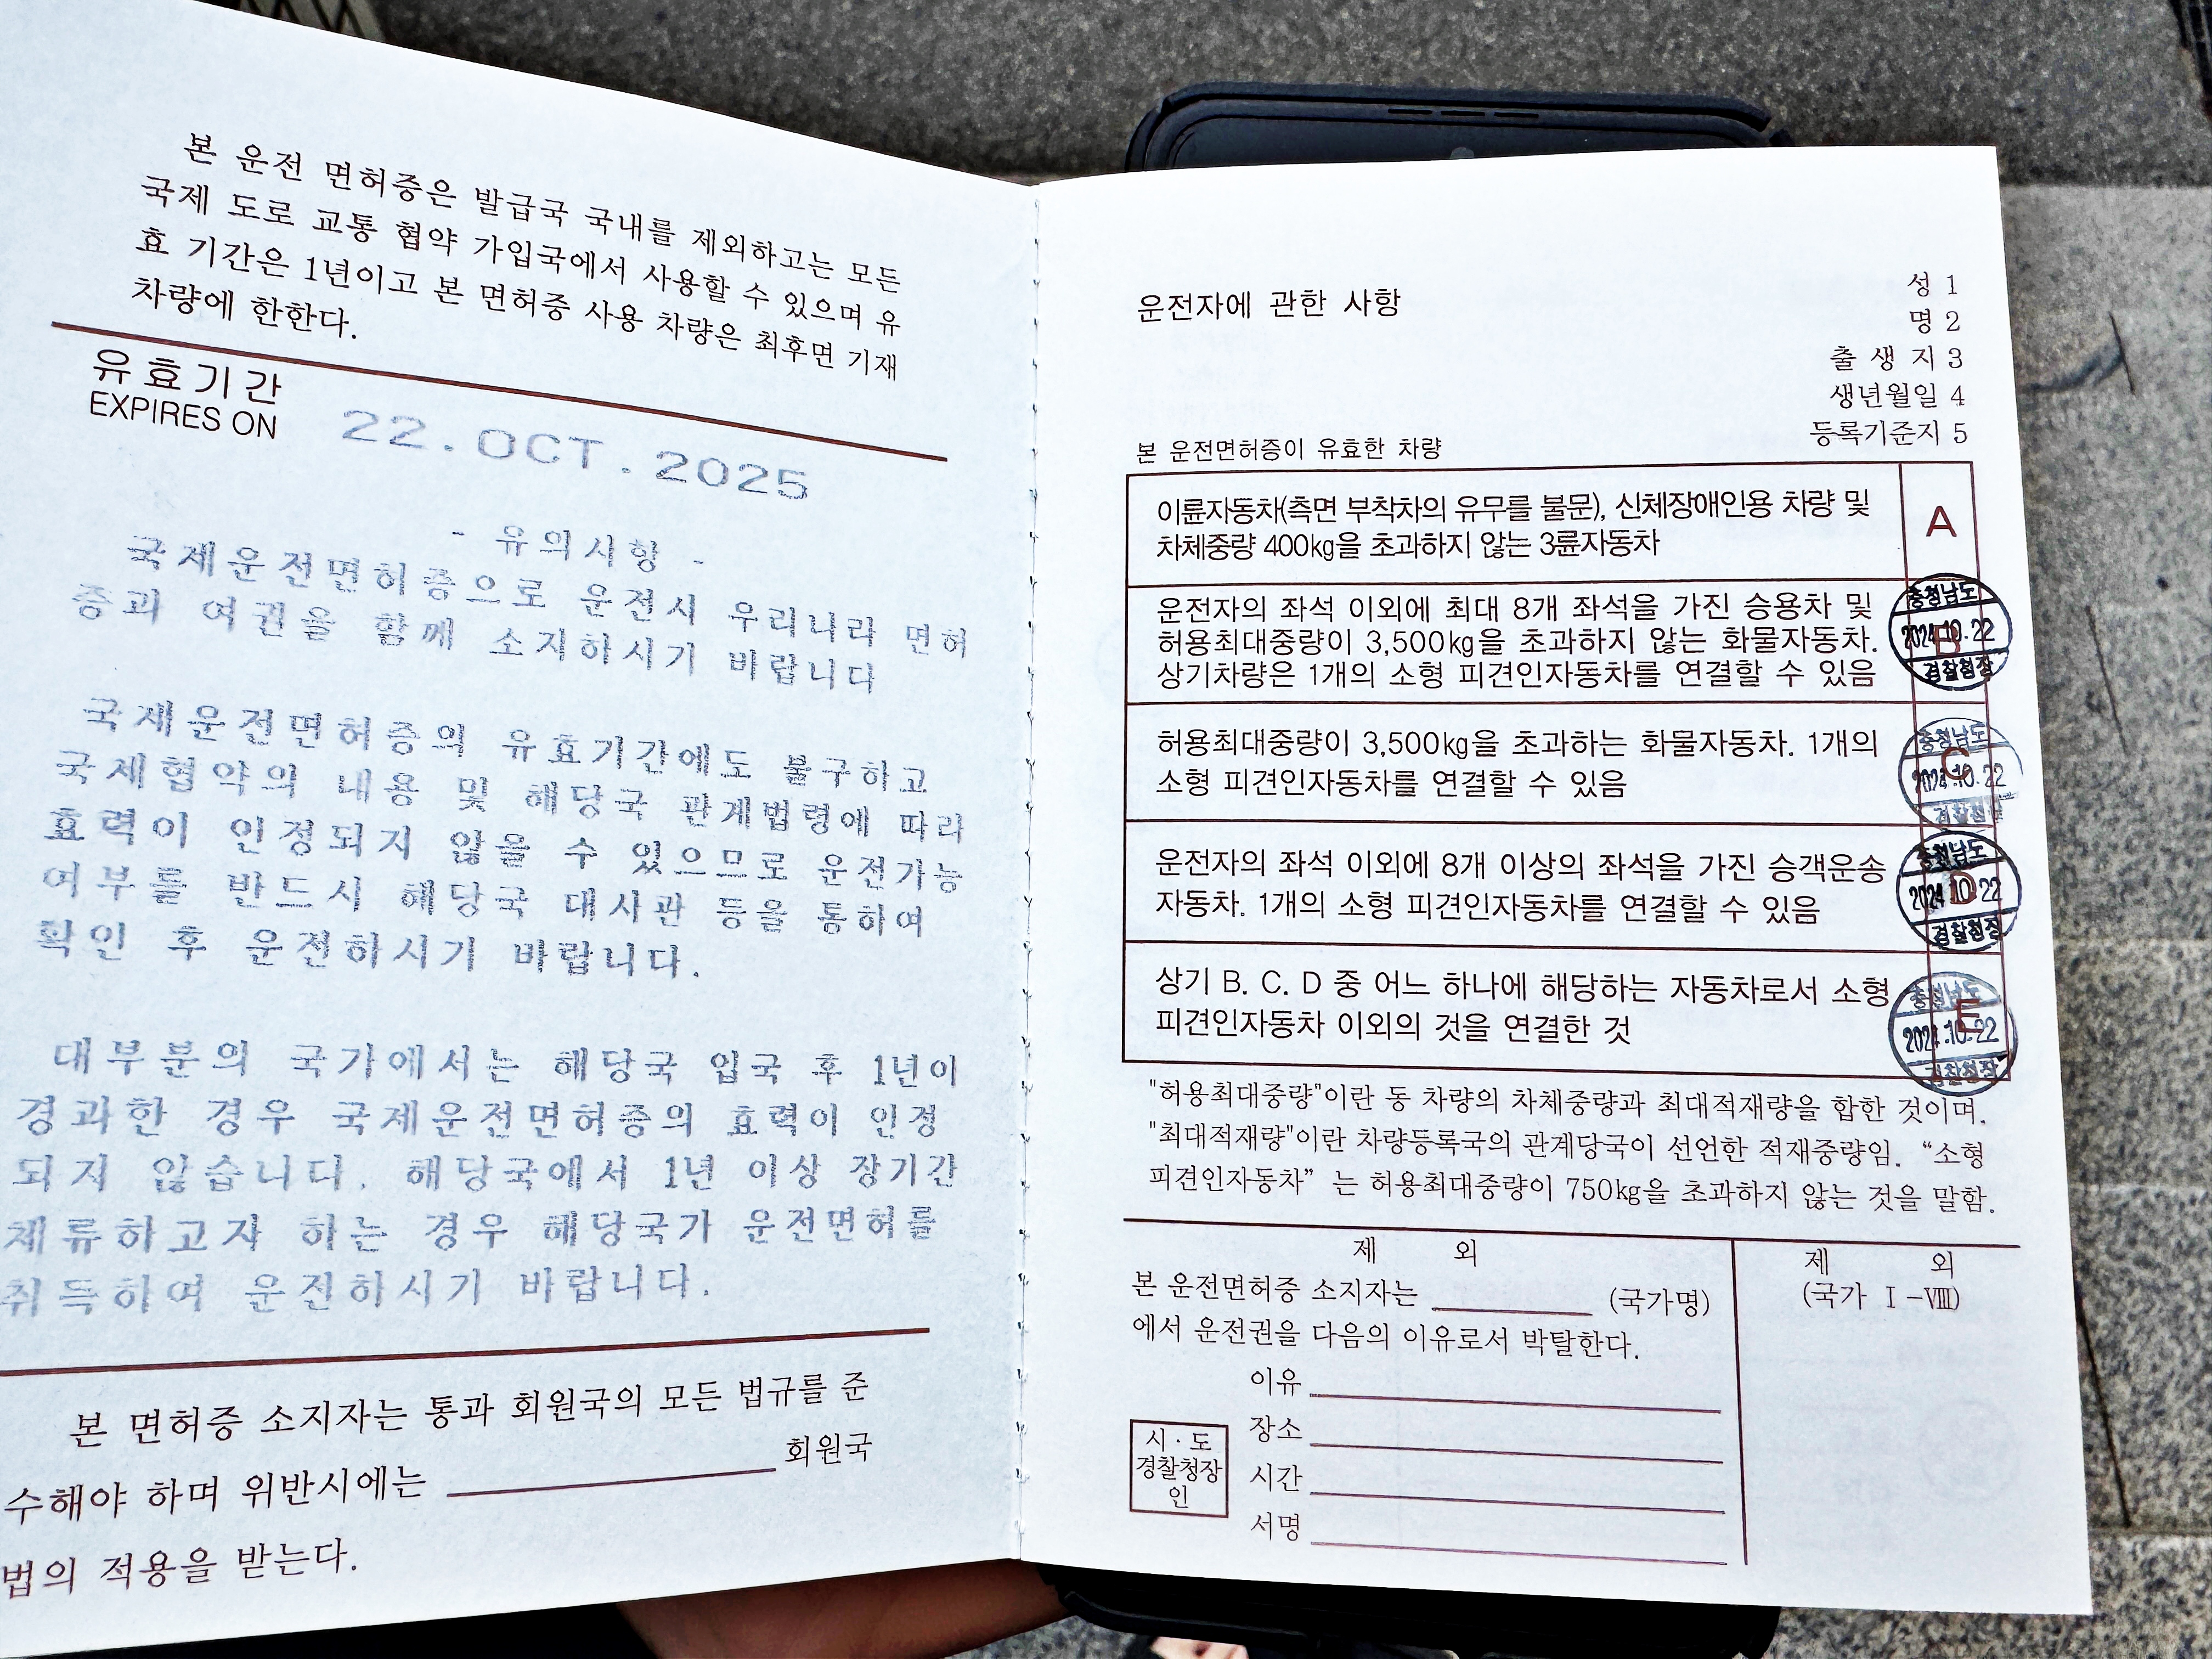 본 운전 면허증은 발급국 국내를 제외하고는 모든
국제 도로 교통 협약 가입국에서 사용할 수 있으며 유
효 기간은 1년이고 본 면허증 사용 차량은 최후면 기재
차량에 한한다.
유효기간
EXPIRES ON
22.OCT.2025
- 유의사항 -
국제운전면허증으로 운전시 우리나라 면허
증과 여권을 함께 소지하시기 바랍니다
국제운전면허증의 유효기간에도 불구하고
국제협약의 내용 및 해당국 관계법령에 따라
효력이 인정되지 않을 수 있으므로 운전가능
여부를 반드시 해당국 대사관 등을 통하여
확인 후 운전하시기 바랍니다.
대부분의 국가에서는 해당국 입국 후 1년이
경과한 경우 국제운전면허증의 효력이 인정
되지 않습니다. 해당국에서 1년 이상 장기간
체류하고자 하는 경우 해당국가 운전면허를
취득하여 운전하시기 바랍니다.
본 면허증 소지자는 통과 회원국의 모든 법규를 준
수해야 하며 위반시에는 회원국
법의 적용을 받는다.
운전자에 관한 사항
성 1
명 2
출 생 지 3
생년월일 4
등록기준지 5
본 운전면허증이 유효한 차량
이륜자동차(측면 부착차의 유무를 불문), 신체장애인용 차량 및
차체중량 400kg을 초과하지 않는 3륜자동차
A
운전자의 좌석 이외에 최대 8개 좌석을 가진 승용차 및
허용최대중량이 3,500kg을 초과하지 않는 화물자동차.
상기차량은 1개의 소형 피견인자동차를 연결할 수 있음
B
충청남도
2024.10.22
경찰청장
허용최대중량이 3,500kg을 초과하는 화물자동차. 1개의
소형 피견인자동차를 연결할 수 있음
C
충청남도
2024.10.22
경찰청장
운전자의 좌석 이외에 8개 이상의 좌석을 가진 승객운송
자동차. 1개의 소형 피견인자동차를 연결할 수 있음
D
충청남도
2024.10.22
경찰청장
상기 B. C. D 중 어느 하나에 해당하는 자동차로서 소형
피견인자동차 이외의 것을 연결한 것
E
충청남도
2024.10.22
경찰청장
"허용최대중량"이란 동 차량의 차체중량과 최대적재량을 합한 것이며.
"최대적재량"이란 차량등록국의 관계당국이 선언한 적재중량임. “소형
피견인자동차” 는 허용최대중량이 750kg을 초과하지 않는 것을 말함.
제 외
본 운전면허증 소지자는 (국가명)
에서 운전권을 다음의 이유로서 박탈한다.
이유
장소
시간
서명
시·도
경찰청장
인
제 외
(국가 Ⅰ-Ⅷ)